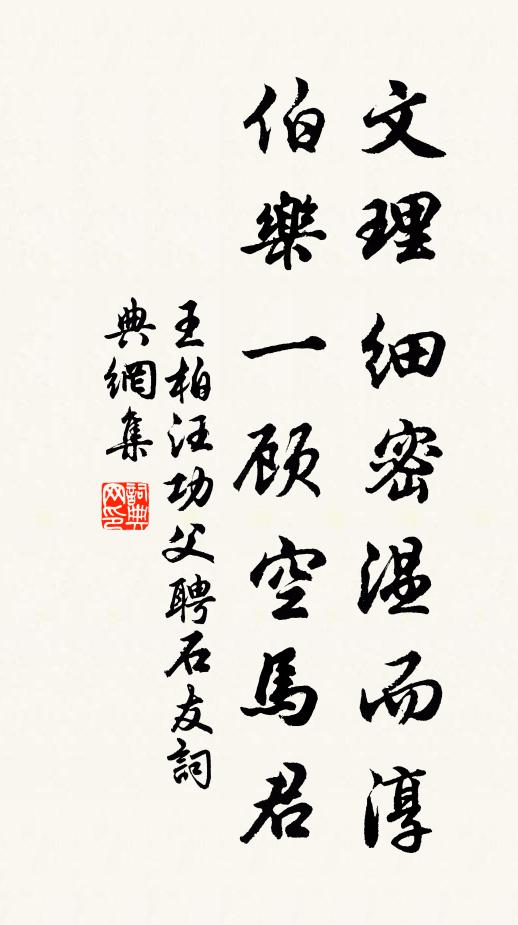 文理细密温而淳
伯樂一顾空馬君
王柏汪功父聘石友詞
典網集
詞典网印